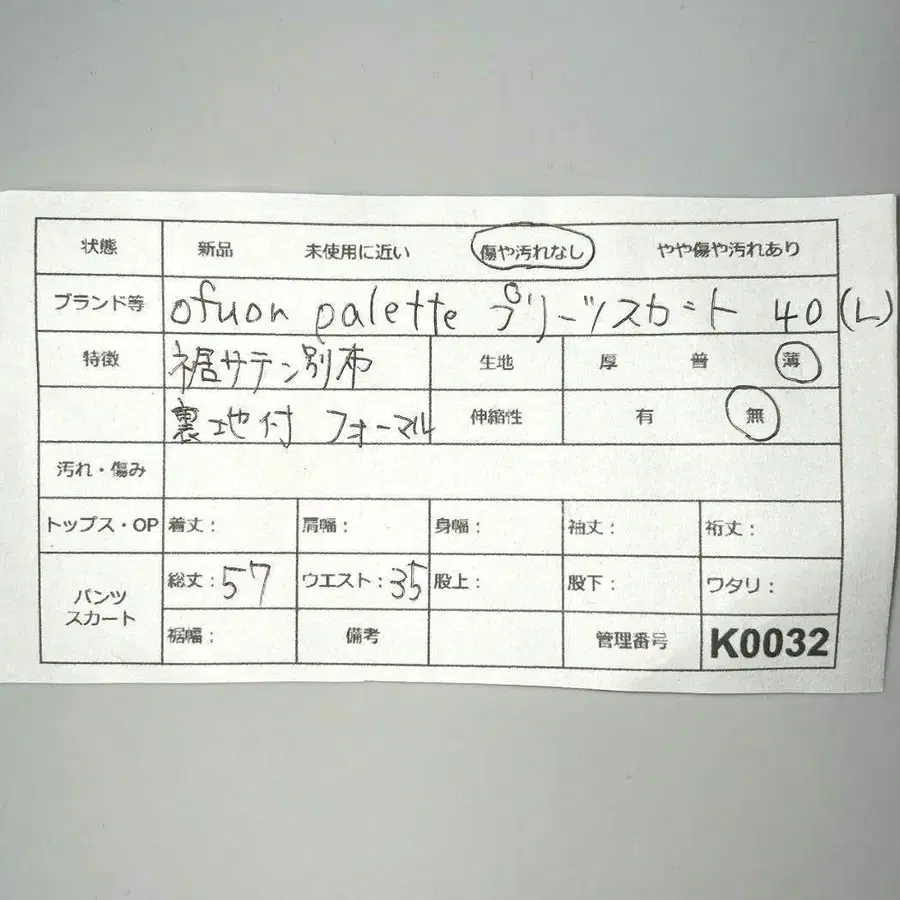 状態 新品 未使用に近い 傷や汚れなし やや傷や汚れあり
ブランド等 ofuon palette プリーツスカート 40(L)
特徴 裾サテン別布 生地 厚 普 薄
裏地付 フォーマル 伸縮性 有 無
汚れ・傷み
トップス・OP 着丈: 肩幅: 身幅: 袖丈: 裄丈:
パンツ スカート 総丈:57 ウエスト:35 股上: 股下: ワタリ:
裾幅: 備考 管理番号 K0032